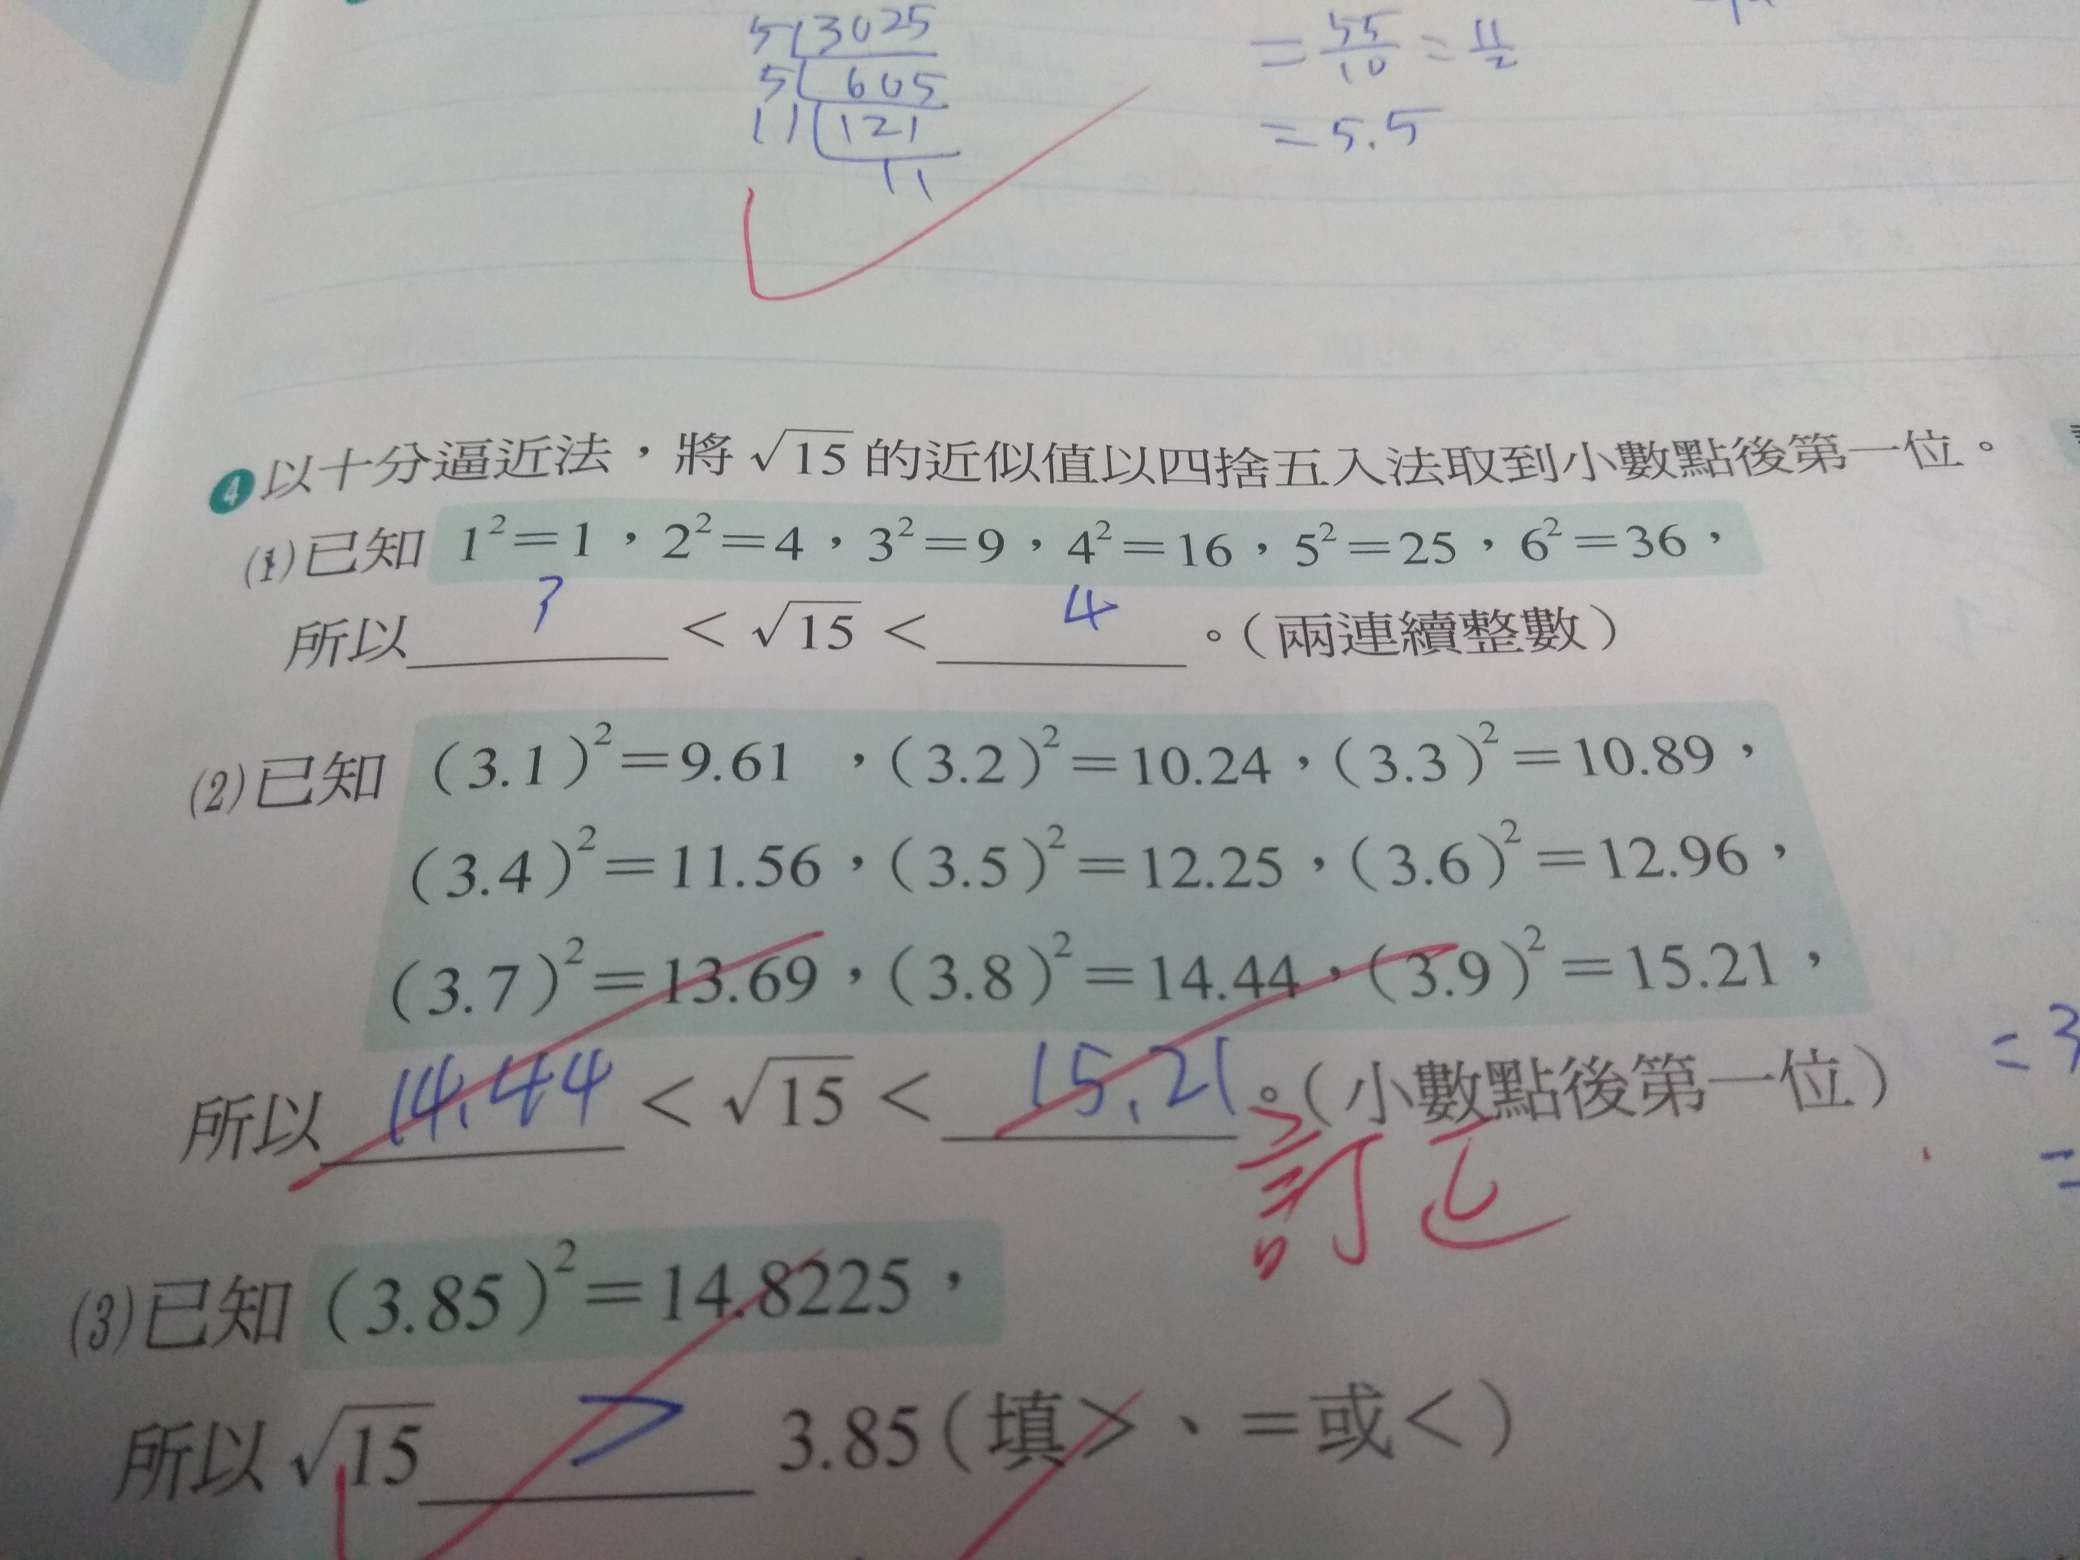 5 3025
5 605
11 121
11
= 55/10 = 11/2
= 5.5
4 以十分逼近法，將 √15 的近似值以四捨五入法取到小數點後第一位。
(1)已知 1²=1，2²=4，3²=9，4²=16，5²=25，6²=36，
所以 3 < √15 < 4 。(兩連續整數)
(2)已知 (3.1)²=9.61 ，(3.2)²=10.24，(3.3)²=10.89，
(3.4)²=11.56，(3.5)²=12.25，(3.6)²=12.96，
(3.7)²=13.69，(3.8)²=14.44，(3.9)²=15.21，
所以 14.44 < √15 < 15.21 。(小數點後第一位)
訂正
(3)已知 (3.85)²=14.8225，
所以 √15 > 3.85 (填>、=或<)
= 3
=